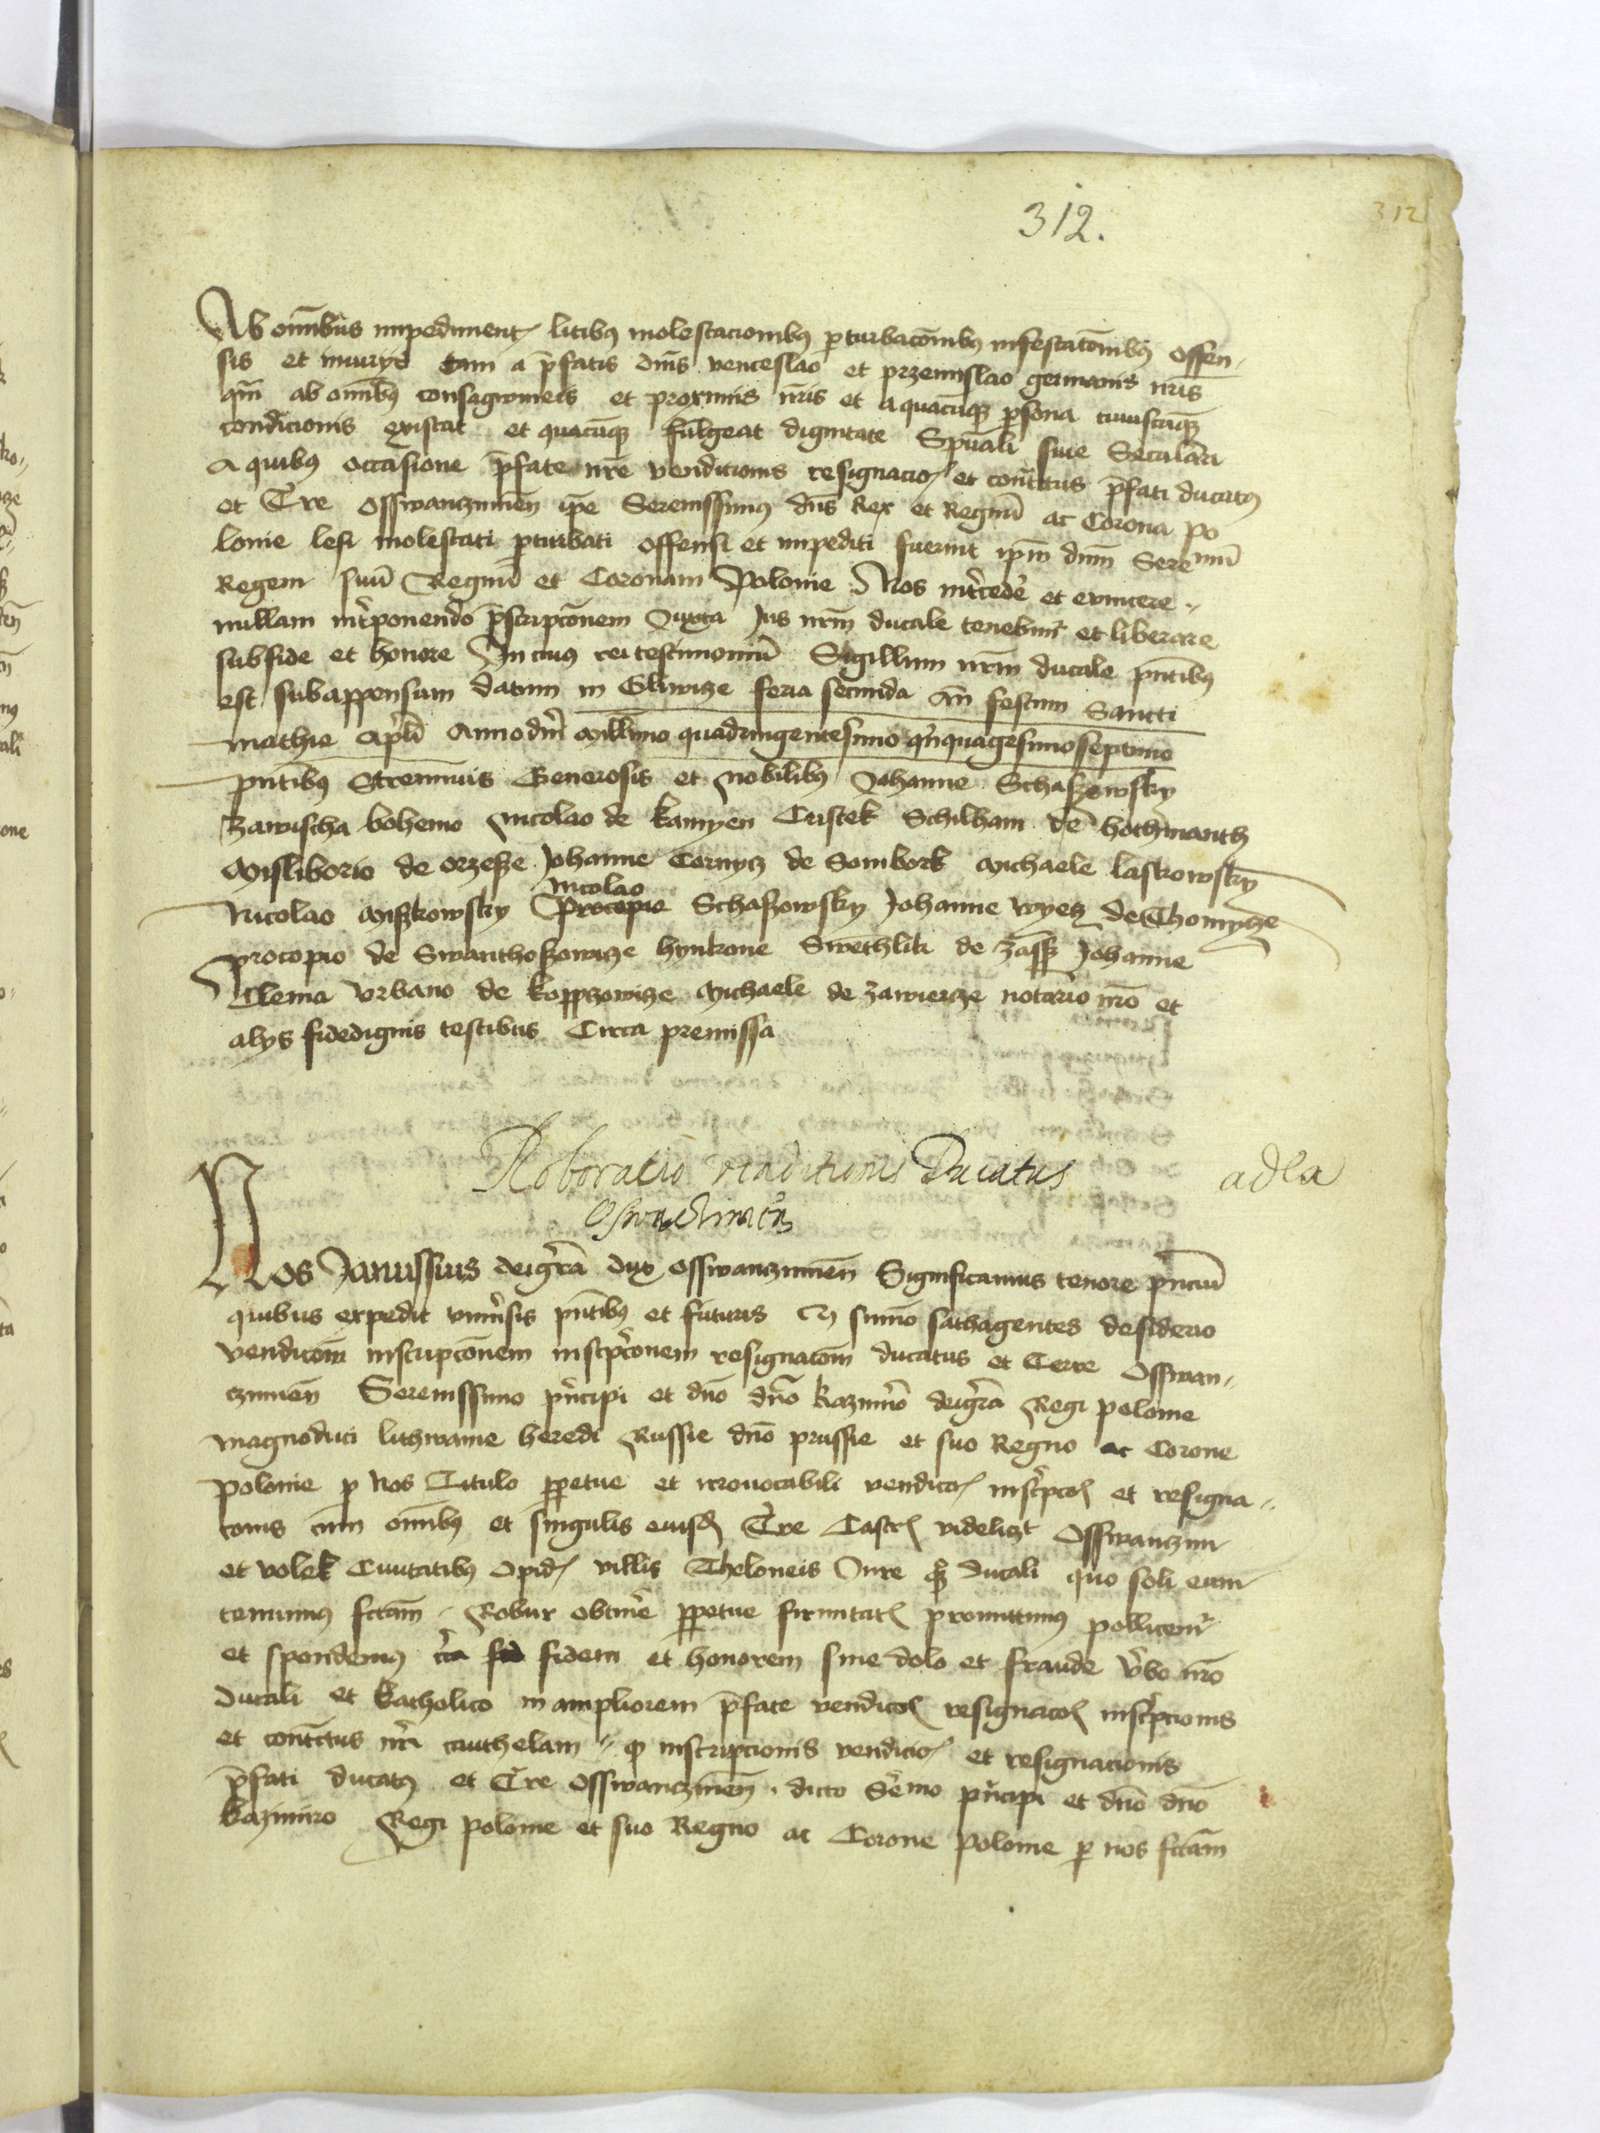 312.
312
Ab om̄ibus impediment litibus molestacionibꝰ ꝑturbacōnibꝰ infestatōnibꝰ offen-
sis et iniurys tam a p̄fatis dnīs venceslao et przemislao germanis nr̄is
qm̄ ab om̄ibꝰ consagwineis et proximis nr̄is et a quacūqꝫ ꝑsona cuiuscūqꝫ
condicionis existat et quacūqꝫ fulgeat dignitate Spūali siue Seculari
A quibꝰ occasione p̄fate nr̄e vendicionis resignacio et conūtus p̄fati ducatꝰ
et Tr̄e Osswanczimen̄ ip̄e Serenissimꝰ dn̄s Rex et Regnū ac Corona Po
lonie lesi molestati ꝑturbati offensi et impediti fuerint ip̄m dnm̄ Serenū
Regem suū Regnū et Coronam Polonie Nos int̄cedē et evincere
nullam int̄ponendo p̄scripcōnem Juxta Jus nrm̄ ducale tenebim̄ et liberare
sub fide et honore In cuius rei testimoniū Sigillum nrm̄ ducale pn̄tibꝰ
est subappensum datum in Gliwicze feria secunda an̄ festum Sancti
mathie apl̄i Anno dn̄i Millīmo quadringentesimo qͥnquagesimo septimo
pn̄tibꝰ Strennuis Generosis et Nobilibꝰ Johanne Schaszowsky
Zawischa bohemo Nicolao de kamyen Cristek Schilhan de hothnanth
Misliborio de orzesze Johanne Cornycz de Sombork Michaele laskowsky
Nicolao
Nicolao Miszkowsky Procopio Schaszowsky Johanne wyetz de Thomycze
procopio de Swanthoszowicze hynkone Swethliki de zassz Johanne
Clema Vrbano de kopczowicze Michaele de zawiercze notario nr̄o et
alys fidedignis testibus Circa premissa
Roboratio venditionis Ducatus
Oswieczimen̄
adla
Nos Janussius dei gr̄a dux osswanczimen̄ Significamus tenore pn̄ciū
quibus expedit vnīu̾sis pn̄tibꝰ et futuris Qꝫ sum̄o sathagentes desiderio
vendicōm inscripcōnem inscpc̄onem resignacōm ducatus et Terre Osswan-
czimen̄ Serenissimo pn̄cipi et dn̄o dn̄o kazim̄o dei gr̄a Regi polonie
magno duci lithwanie heredi Russie dn̄o prussie et suo Regno ac Corone
polonie ꝑ Nos Titulo ꝑpetue et irreuocabili vendico inscpco et resigna-
conis cum om̄ibꝰ et singulis eiusd Tr̄e Castr videlicꝫt Osswanczim
et volek Ciuitatibꝰ Opid villis Theloneis Jure qꝫ ducali quo soli eam
tenuimꝰ fctam Robur obtin̄e ꝑpetue firmitat promittimꝰ pollicem̄
et spondemꝰ c̄ca fid fidem et honorem sine dolo et fraude v̄bo nr̄o
ducali et katholico in ampliorem p̄fate vendico resignaco inscp̄cionis
et contctus nr̄i cauthelam qꝫ inscripcionis vendicio et resignacionis
p̄fati ducatꝰ et Tr̄e Osswanczimen̄ dicto Ser̄mo pn̄cipi et dn̄o dn̄o
kazimiro Regi polonie et suo Regno ac Corone polonie ꝑ nos fctam